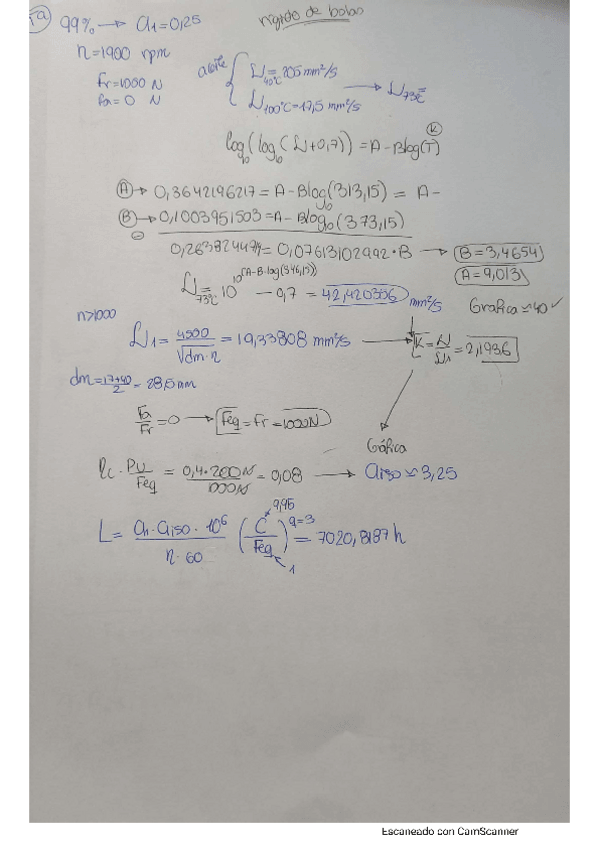 1a) 99% → a1=0,25
rígido de bolas
n=1900 rpm
Fr=1000 N
Fa=0 N
aceite { 𝒱40°C = 205 mm²/s
𝒱100°C = 17,5 mm²/s → 𝒱73°C
log10(log10(𝒱+0,7)) = A-Blog(T) (K)
(A) → 0,3642196217 = A-Blog10(313,15) = A-
(B) → 0,1003951503 = A-Blog10(373,15)
0,2638244714 = 0,07613102992·B → B=3,4654
A=9,013
𝒱73°C = 10^10^(A-B·log(346,15)) - 0,7 = 42,420336 mm²/s
Grafica ≈ 40 ✓
n>1000
𝒱1 = 4500/√dm·n = 19,33808 mm²/s → K = 𝒱/𝒱1 = 2,1936
dm = 17+40/2 = 28,5 mm
Fa/Fr = 0 → Feq = Fr = 1000N
Gráfica
ηc · Pu/Feq = 0,4·200N/1000N = 0,08 → aiso ≈ 3,25
L = a1·aiso·10⁶/n·60 (C/Feq)^a=3 = 7020,8187 h
9,95
1
Escaneado con CamScanner